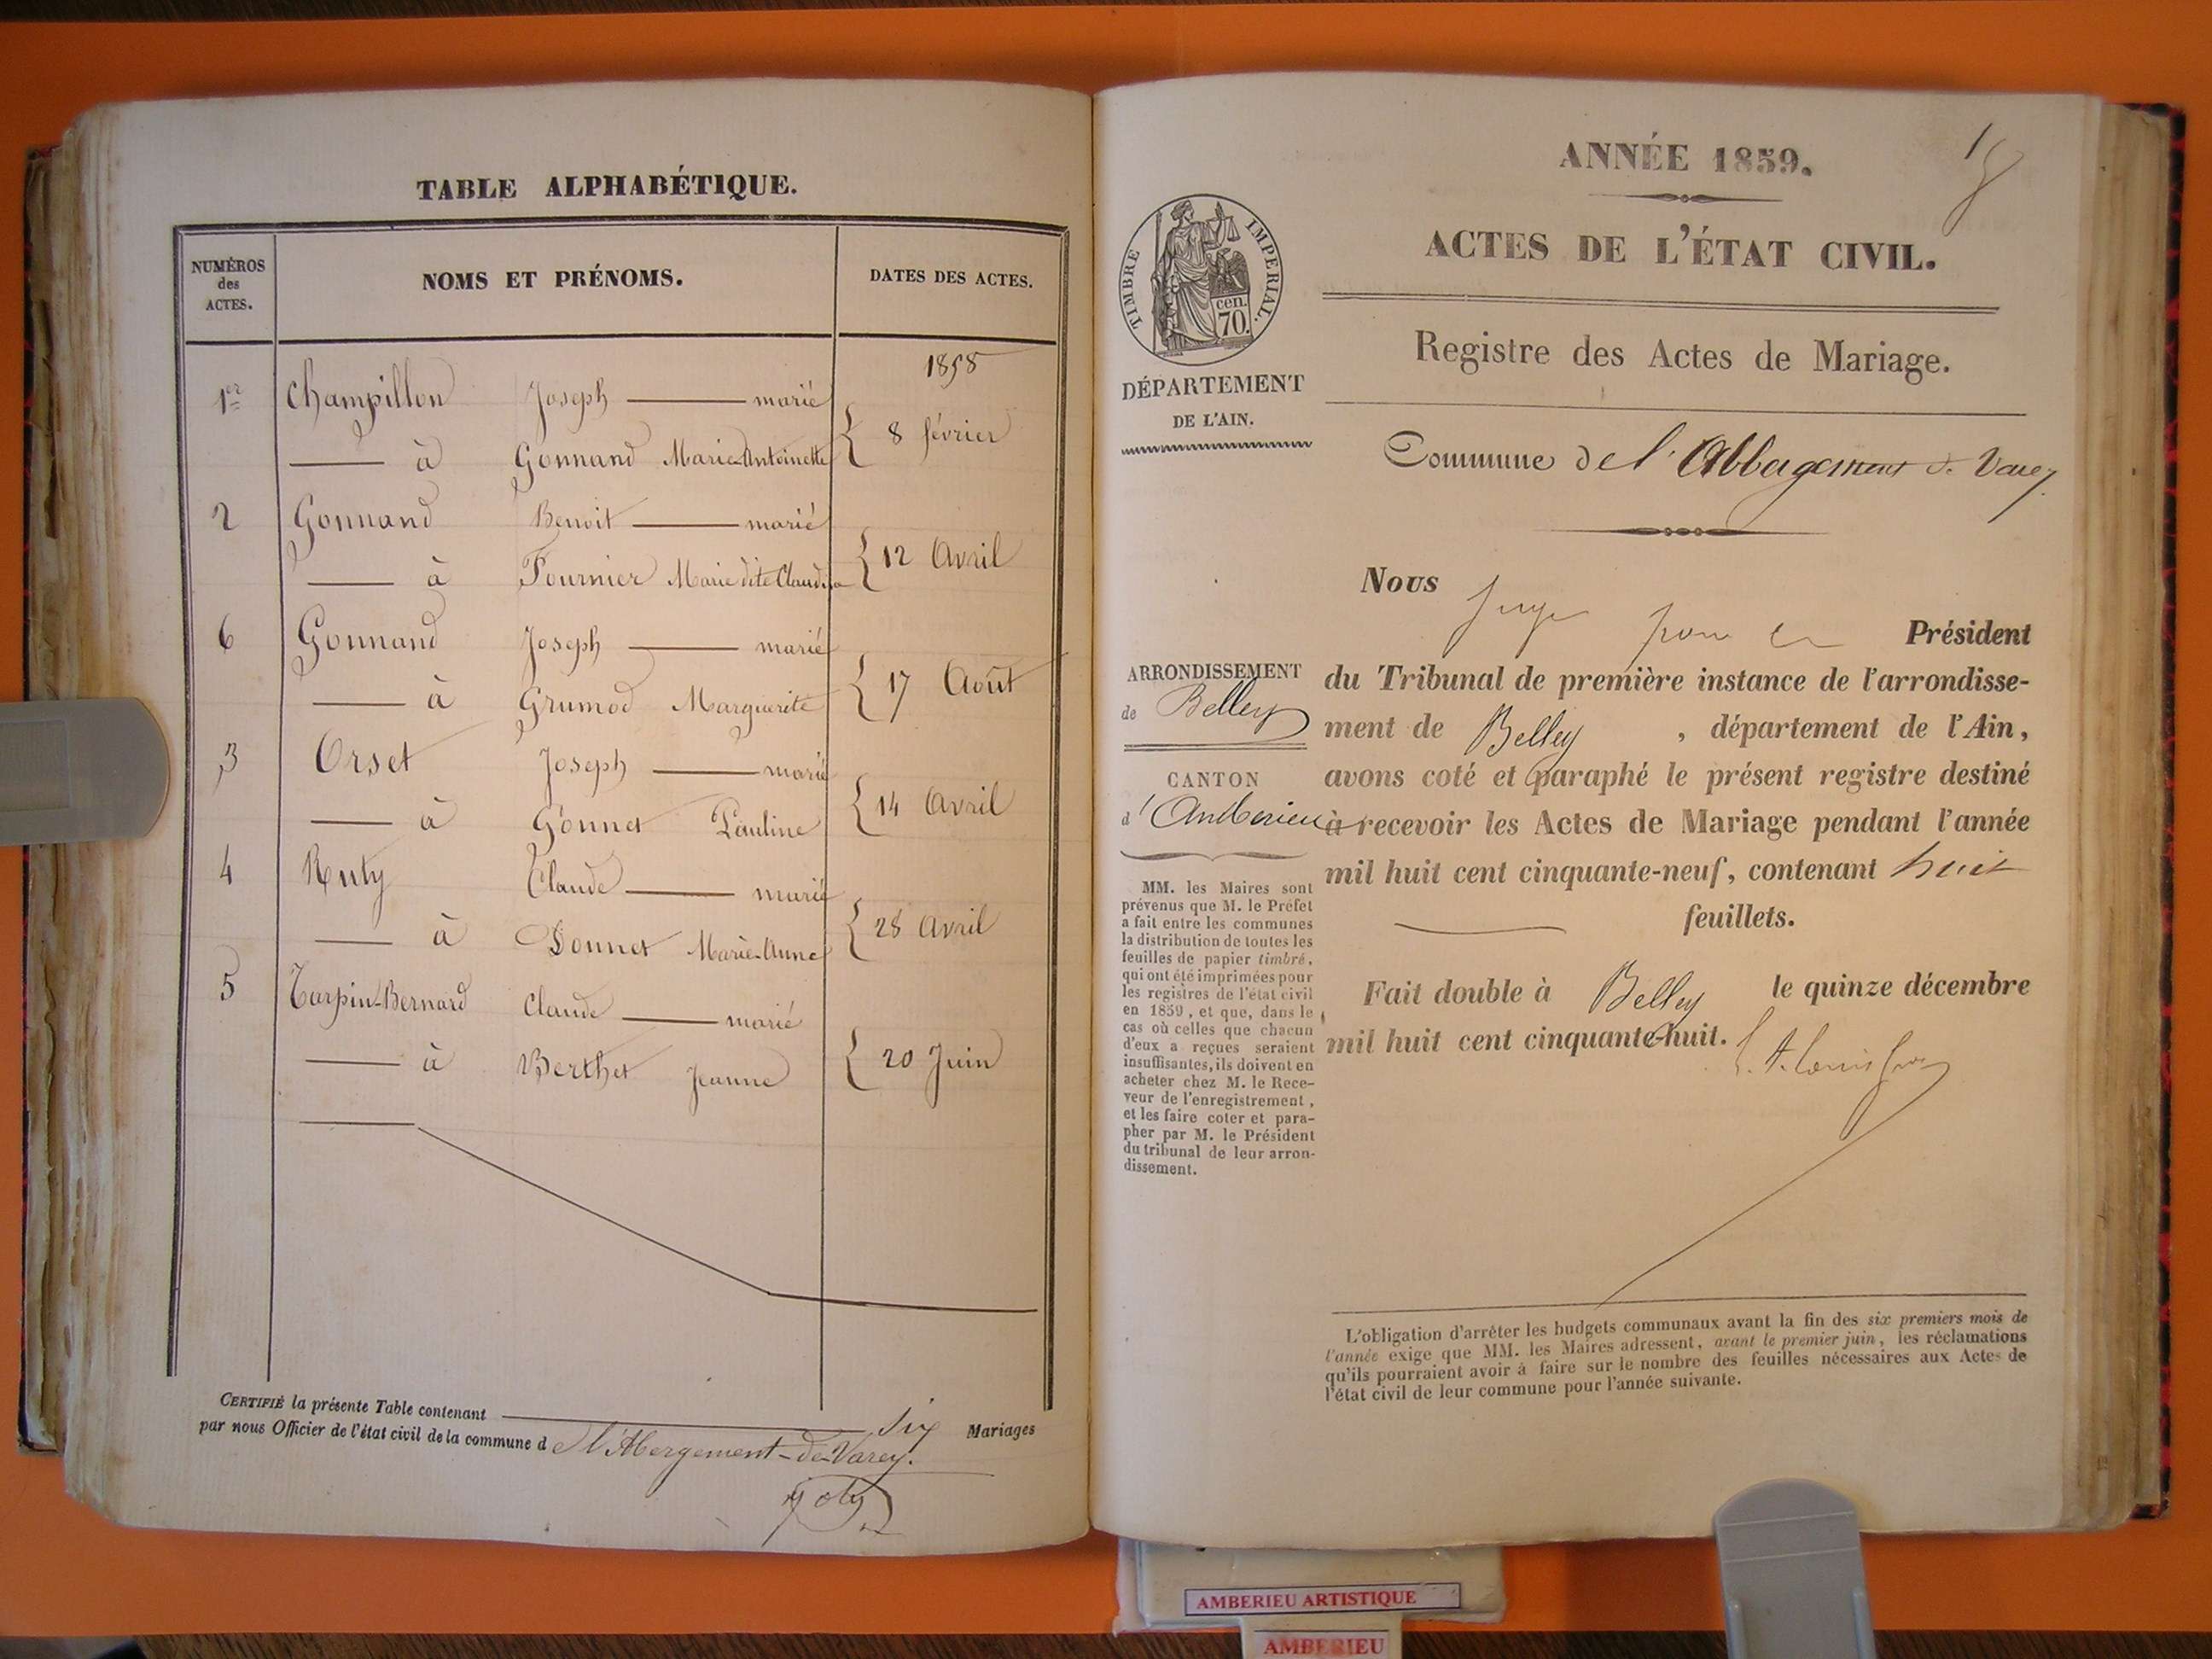 TABLE ALPHABÉTIQUE.
NUMÉROS des ACTES. NOMS ET PRÉNOMS. DATES DES ACTES.
1858
1er Champillon Joseph marié
à Gonnand Marie-Antoinette 8 février
2 Gonnand Benoit marié
à Fournier Marie dite Claudina 12 Avril
6 Gonnand Joseph marié
à Grumod Marguerite 17 Août
3 Orset Joseph marié
à Gonnet Pauline 14 Avril
4 Ruty Claude marié
à Donnet Marie-Anne 28 Avril
5 Tarpin-Bernard Claude marié
à Berthet Jeanne 20 Juin
CERTIFIÉ la présente Table contenant six Mariages
par nous Officier de l'état civil de la commune de l'Abergement-de-Varey.
ANNÉE 1859.
ACTES DE L'ÉTAT CIVIL.
Registre des Actes de Mariage.
TIMBRE IMPERIAL.
cen.
70.
DÉPARTEMENT
DE L'AIN.
Commune de l'Abbergement de Varey.
ARRONDISSEMENT
de Belley
CANTON
d'Amberieu
MM. les Maires sont
prévenus que M. le Préfet
a fait entre les communes
la distribution de toutes les
feuilles de papier timbré,
qui ont été imprimées pour
les registres de l'état civil
en 1859, et que, dans le
cas où celles que chacun
d'eux a reçues seraient
insuffisantes, ils doivent en
acheter chez M. le Rece-
veur de l'enregistrement,
et les faire coter et para-
pher par M. le Président
du tribunal de leur arron-
dissement.
Nous juge pour le Président
du Tribunal de première instance de l'arrondisse-
ment de Belley, département de l'Ain,
avons coté et paraphé le présent registre destiné
à recevoir les Actes de Mariage pendant l'année
mil huit cent cinquante-neuf, contenant huit
feuillets.
Fait double à Belley le quinze décembre
mil huit cent cinquante-huit.
L'obligation d'arrêter les budgets communaux avant la fin des six premiers mois de
l'année exige que MM. les Maires adressent, avant le premier juin, les réclamations
qu'ils pourraient avoir à faire sur le nombre des feuilles nécessaires aux Actes de
l'état civil de leur commune pour l'année suivante.
AMBERIEU ARTISTIQUE
AMBERIEU